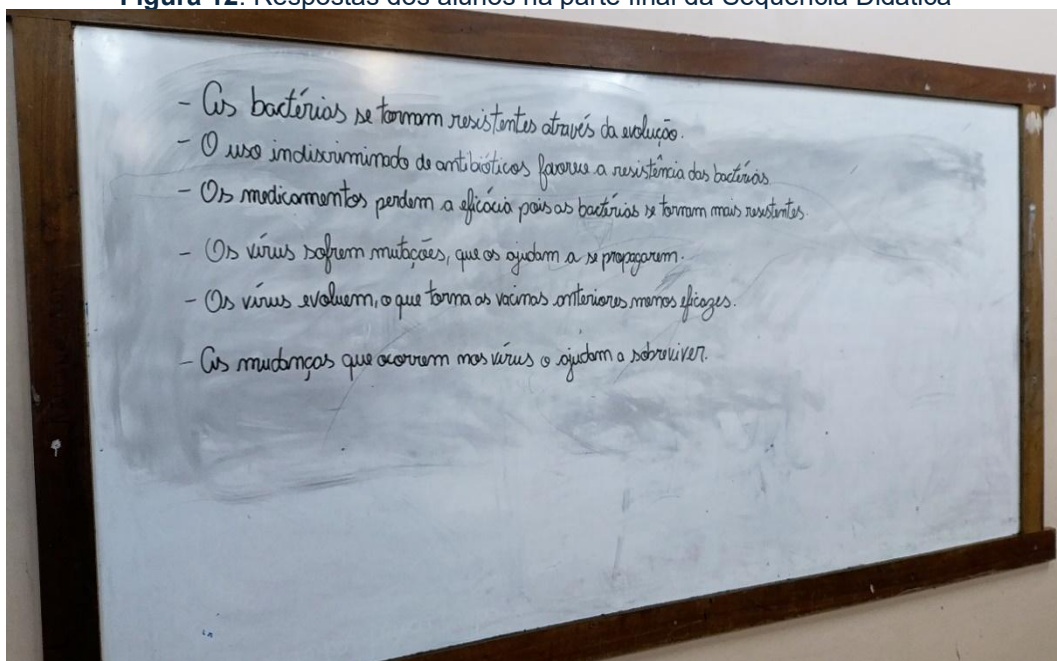 Figura 12. Respostas dos alunos na parte final da Sequência Didática
- As bactérias se tornam resistentes através da evolução.
- O uso indiscriminado de antibióticos favorece a resistência das bactérias
- Os medicamentos perdem a eficácia pois as bactérias se tornam mais resistentes.
- Os vírus sofrem mutações, que os ajudam a se propagarem.
- Os vírus evoluem, o que torna as vacinas anteriores menos eficazes.
- As mudanças que ocorrem nos vírus o ajudam a sobreviver.